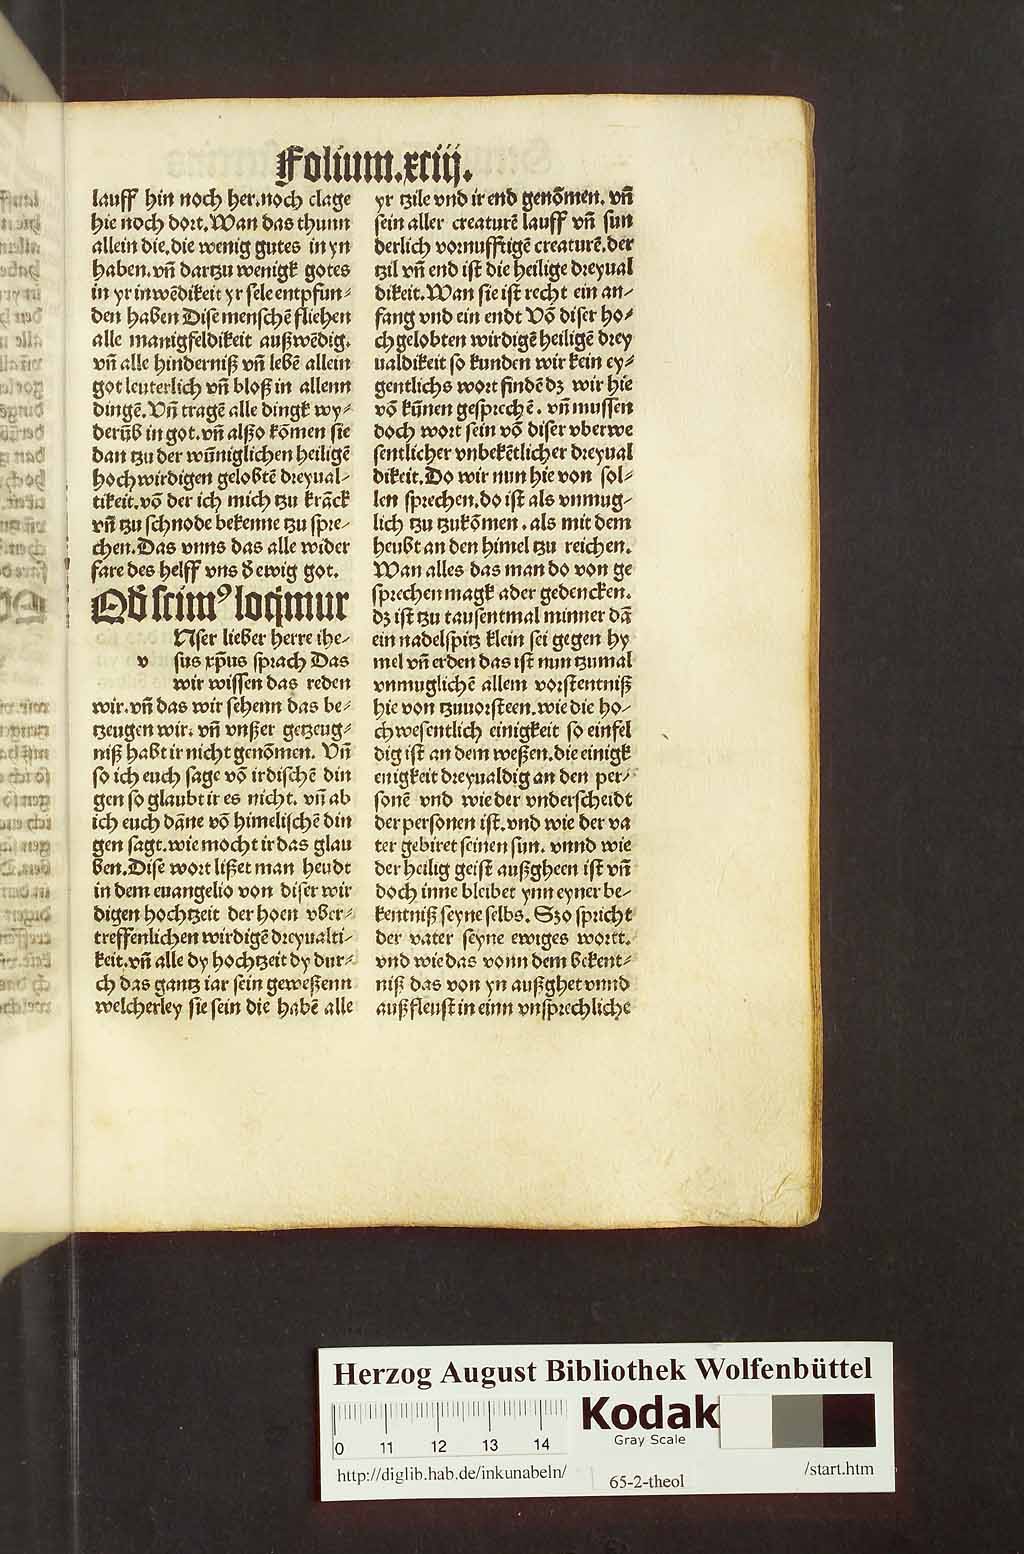 Folium.xciij.
lauff hin noch her.noch clage
hie noch dort.Wan das thunn
allein die.die wenig gutes in yn
haben.vñ dartzu wenigk gotes
in yr inwēdikeit yr sele entpfun⸗
den haben Dise menschē fliehen
alle manigfeldikeit außwēdig.
vñ alle hinderniß vñ lebē allein
got leuterlich vñ bloß in allenn
dingē.Vñ tragē alle dingk wy⸗
derūb in got.vñ alßo kōmen sie
dan tzu der wūniglichen heiligē
hochwirdigen gelobtē dreyual⸗
tikeit.vō der ich mich tzu krāck
vñ tzu schnode bekenne tzu spre⸗
chen.Das vnns das alle wider
fare des helff vns d̕ ewig got.
Qd̕ scim⁹ loq̄mur
Nser lieber herre ihe⸗
v sus xp̄us sprach Das
wir wissen das reden
wir.vñ das wir sehenn das be⸗
tzeugen wir. vñ vnßer getzeug⸗
niß habt ir nicht genōmen. Vñ
so ich euch sage vō irdischē din
gen so glaubt ir es nicht. vñ ab
ich euch dāne vō himelischē din
gen sagt.wie mocht ir das glau
ben.Dise wort lißet man heudt
in dem euangelio von diser wir
digen hochtzeit der hoen vber⸗
treffenlichen wirdigē dreyualti⸗
keit.vñ alle dy hochtzeit dy dur⸗
ch das gantz iar sein geweßenn
welcherley sie sein die habē alle
yr tzile vnd ir end genōmen. vñ
sein aller creaturē lauff vñ sun
derlich vornufftigē creaturē.der
tzil vñ end ist die heilige dreyual
dikeit.Wan sie ist recht ein an⸗
fang vnd ein endt Vō diser ho⸗
chgelobten wirdigē heiligē drey
ualdikeit so kunden wir kein ey⸗
gentlichs wort findē dz wir hie
vō kūnen gesprechē. vñ mussen
doch wort sein vō diser vberwe
sentlicher vnbekētlicher dreyual
dikeit.Do wir nun hie von sol⸗
len sprechen.do ist als vnmug⸗
lich tzu tzukōmen.als mit dem
heubt an den himel tzu reichen.
Wan alles das man do von ge
sprechen magk ader gedencken.
dz ist tzu tausentmal minner dā
ein nadelspitz klein sei gegen hy
mel vñ erden das ist nun tzumal
vnmuglichē allem vorstentniß
hie von tzuuorsteen.wie die ho⸗
chwesentlich einigkeit so einfel
dig ist an dem weßen.die einigk
enigkeit dreyualdig an den per⸗
sonē vnd wie der vnderscheidt
der personen ist.vnd wie der va
ter gebiret seinen sun. vnnd wie
der heilig geist außgheen ist vñ
doch inne bleibet ynn eyner be⸗
kentniß seyne selbs. Szo spricht
der vater seyne ewiges wortt.
vnd wie das vonn dem bekent⸗
niß das von yn außghet vnnd
außfleust in einn vnsprechliche
Herzog August Bibliothek Wolfenbüttel
0 11 12 13 14
Kodak
Gray Scale
http://diglib.hab.de/inkunabeln/
65-2-theol
/start.htm